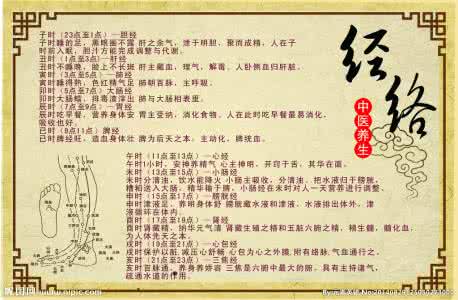 子时（23点至1点）—胆经
子时睡的足，黑眼圈不露 肝之余气，泄于明胆，聚而成精，人在子
时前入眠，胆汁方能完成调整与代谢。
丑时（1点至3点）—肝经
丑时不睡晚，脸上不长斑 肝主藏血，理气，解毒，人卧侧血归肝脏。
寅时（3点至5点）—肺经
寅时睡得熟，色红精气足 肺朝百脉，主呼吸。
卯时（5点至7点）大肠经
卯时大肠蠕，排毒渣滓出 肺与大肠相表里。
辰时（7点至9点）—胃经
辰时吃早餐，营养身体安 胃主受纳，消化食物，人在此时吃早餐最易消化，
吸收也好。
巳时（9点11点）脾经
巳时脾经旺，造血身体壮 脾为后天之本，主动化，脾统血。
午时（11点至13点）—心经
午时1小时，安神养精气 心主神明，开窍于舌，其华在面。
未时（13点至15点）—小肠经
未时分清浊，饮水能降火 小肠主吸收，分清浊，把水液归于膀胱，
糟粕送入大肠，精华输于脾，小肠经在未时对人一天营养进行调整。
申时（15点至17点）—膀胱经
申时津液足，养明身体舒 膀胱藏水液和津液，水液排出体外，津
液循环在体内。
酉时（17点至19点）—肾经
酉时肾藏精，纳华元气清 肾藏生殖之精和五脏六腑之精，精生髓，髓化血，
为人体先天之本。
戌时（19点至21点）—心包经
戌时保护心脏，减压心舒畅 心包为心之外膜，附有络脉，气血通行之。
亥时（21点至23点）—三焦经
亥时百脉通，养身养娇容 三焦是六腑中最大的腑，具有主持诸气，
疏通水道的作用。
经络
中医养生
昵图网 www.nipic.com